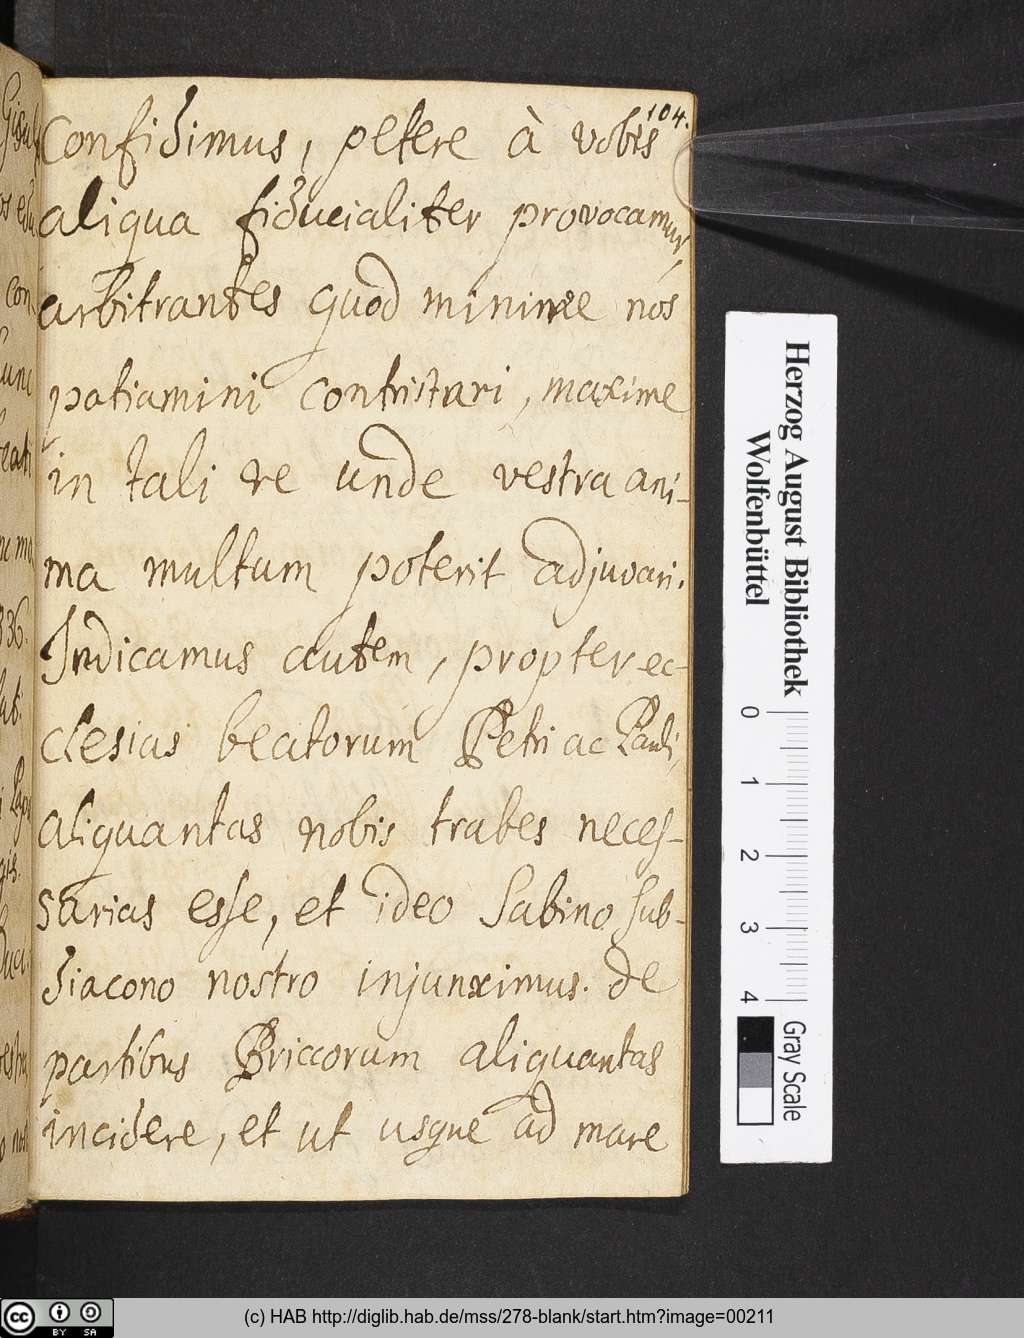 104.
confidimus, petere à vobis
aliqua fiducialiter provocamur,
arbitrantes quod minime nos
patiamini contristari, maxime
in tali re unde vestra ani-
ma multum poterit adjuvari.
Indicamus autem, propter ec-
clesias beatorum Petri ac Pauli,
aliquantas nobis trabes neces-
sarias esse, et ideo Sabino sub-
diacono nostro injunximus. de
partibus Briccorum aliquantas
incidere, et ut usque ad mare
Herzog August Bibliothek
Wolfenbüttel
0 1 2 3 4
Gray Scale
cc BY SA
(c) HAB http://diglib.hab.de/mss/278-blank/start.htm?image=00211